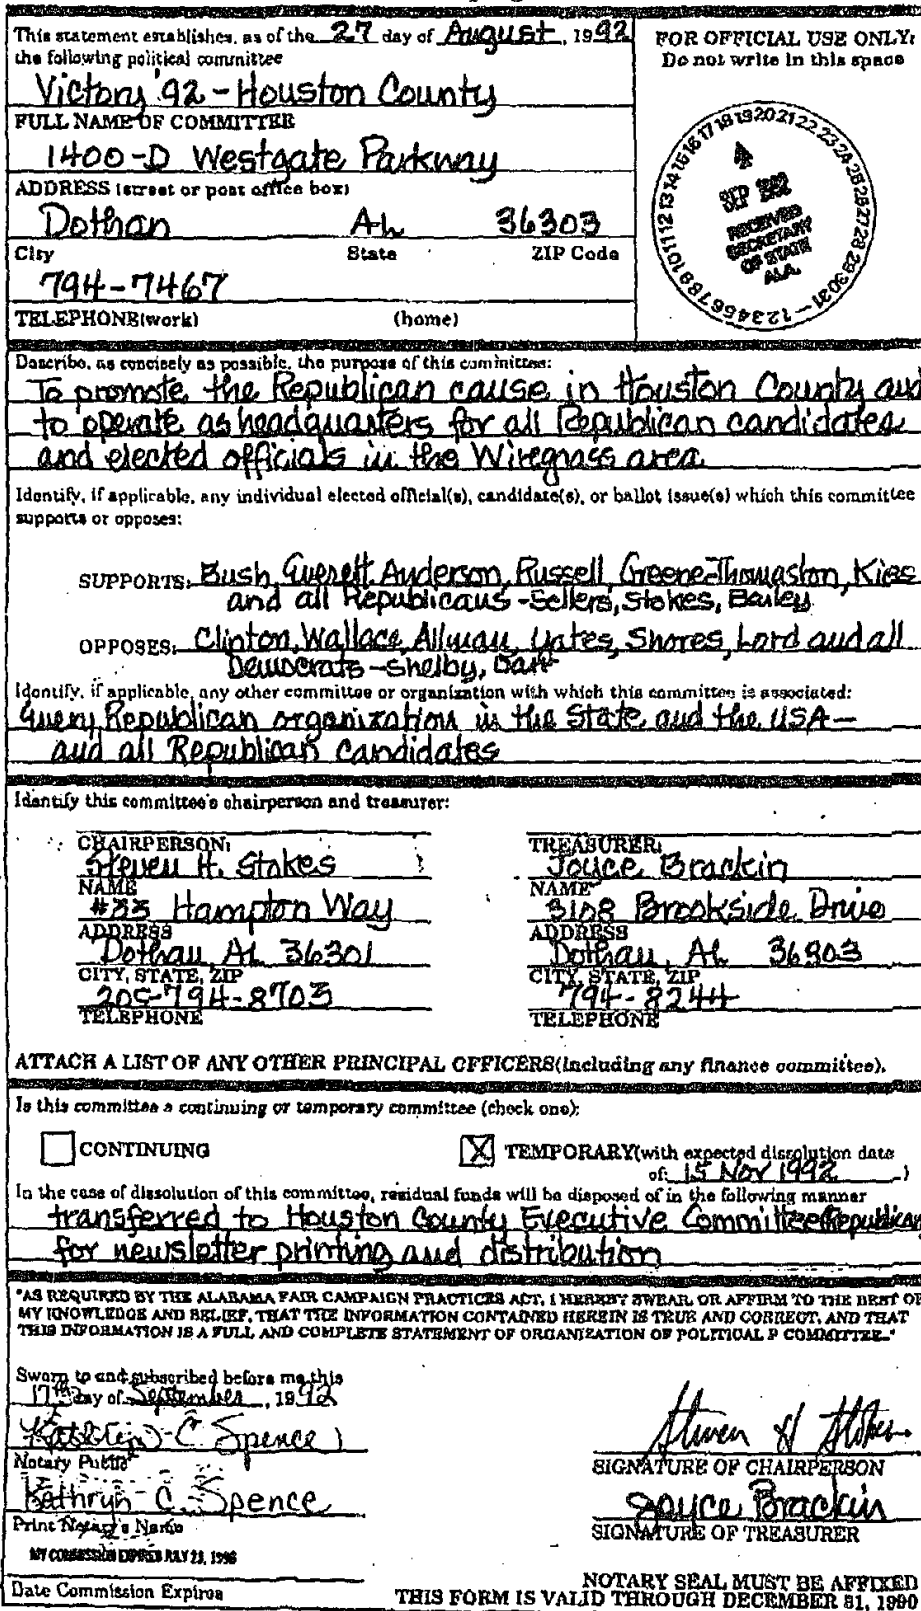 This statement establishes, as of the 27 day of August, 1992
the following political committee
Victory '92 - Houston County
FULL NAME OF COMMITTEE
1400-D Westgate Parkway
ADDRESS (street or post office box)
Dothan AL 36303
City State ZIP Code
794-7467
TELEPHONE(work) (home)
FOR OFFICIAL USE ONLY:
Do not write in this space
RECEIVED
SECRETARY
OF STATE
ALA.
Describe, as concisely as possible, the purpose of this committee:
To promote the Republican cause in Houston County and
to operate as headquarters for all Republican candidates
and elected officials in the Wiregrass area
Identify, if applicable, any individual elected official(s), candidate(s), or ballot issue(s) which this committee
supports or opposes:
SUPPORTS: Bush, Everett, Anderson, Russell, Greene-Thomaston,
and all Republicans - Sellers, Stokes, Bailey
OPPOSES: Clinton, Wallace, Allman, Yates, Shores, Lord and all
Democrats - Shelby,
Identify, if applicable, any other committee or organization with which this committee is associated:
Every Republican organization in the State and the USA -
and all Republican candidates
Identify this committee's chairperson and treasurer:
CHAIRPERSON:
Steven H. Stokes
NAME
#33 Hampton Way
ADDRESS
Dothan, AL 36301
CITY, STATE, ZIP
205-794-8703
TELEPHONE
TREASURER:
Joyce Brackin
NAME
3108 Brookside Drive
ADDRESS
Dothan, AL 36303
CITY, STATE, ZIP
794-8244
TELEPHONE
ATTACH A LIST OF ANY OTHER PRINCIPAL OFFICERS(including any finance committee).
Is this committee a continuing or temporary committee (check one):
CONTINUING
X TEMPORARY(with expected dissolution date
of: 15 Nov 1992 )
In the case of dissolution of this committee, residual funds will be disposed of in the following manner
transferred to Houston County Executive Committee Republican
for newsletter printing and distribution
"AS REQUIRED BY THE ALABAMA FAIR CAMPAIGN PRACTICES ACT, I HEREBY SWEAR OR AFFIRM TO THE BEST OF
MY KNOWLEDGE AND BELIEF, THAT THE INFORMATION CONTAINED HEREIN IS TRUE AND CORRECT, AND THAT
THIS INFORMATION IS A FULL AND COMPLETE STATEMENT OF ORGANIZATION OF POLITICAL P COMMITTEE."
Sworn to and subscribed before me this
17th day of September, 1992
Kathryn C. Spence
Notary Public
Kathryn C. Spence
Print Notary's Name
MY COMMISSION EXPIRES JULY 23, 1996
Date Commission Expires
Steven H Stokes
SIGNATURE OF CHAIRPERSON
Joyce Brackin
SIGNATURE OF TREASURER
NOTARY SEAL MUST BE AFFIXED
THIS FORM IS VALID THROUGH DECEMBER 31, 1990